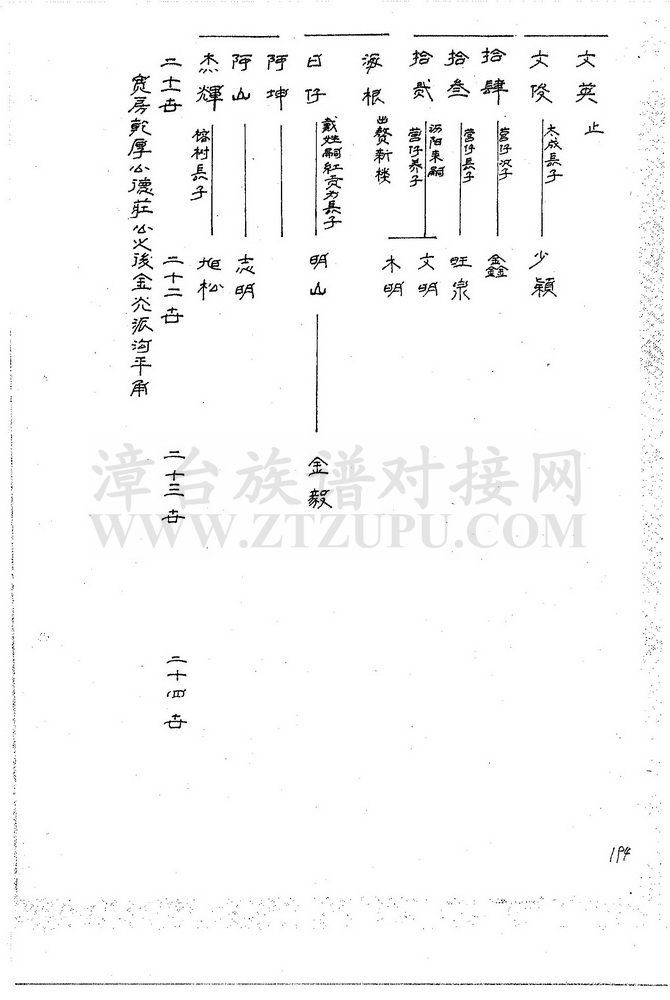 文英 止
文俊 太成長子 少穎
拾肆 营仔次子 鑫
拾叁 营仔長子 旺泉
拾貳 汤阳来嗣 营仔养子 文明
木明
海根 出赘新楼
日仔 戴姓嗣红贡为長子 明山 金毅
阿坤
阿山 志明
杰輝 榕村長子 旭松
二十一世 二十二世 二十三世 二十四世
宽房乾厚公德莊公之後金光派沟平角
漳台族谱对接网
WWW.ZTZUPU.COM
194